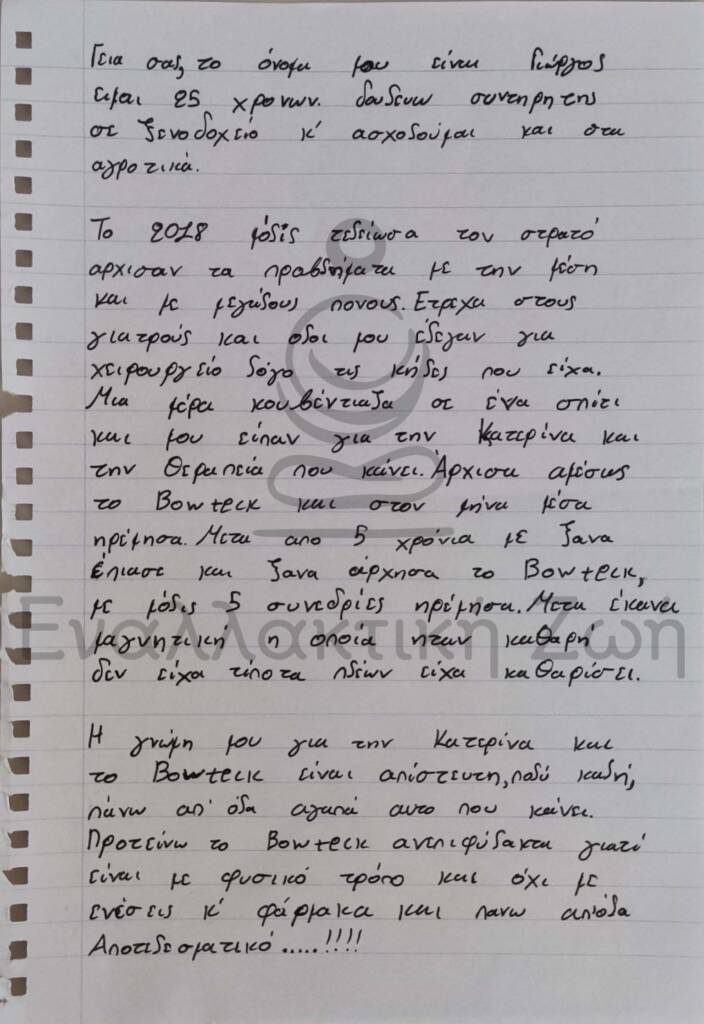 Γεια σας, το όνομα μου είναι Γιώργος
ειμαι 25 χρονων. δουλευω συντηρητης
σε ξενοδοχείο κ' ασχολούμαι και στα
αγροτικά.
Το 2018 μόλις τελείωσα τον στρατό
αρχισαν τα προβλήματα με την μέση
και με μεγάλους πονους. Ετρεχα στους
γιατρούς και ολοι μου έλεγαν για
χειρουργείο λόγο τις κήλες που είχα.
Μια μέρα κουβέντιαζα σε ένα σπίτι
και μου είπαν για την Κατερίνα και
την Θεραπεία που κάνει. Άρχισα αμέσως
το Bowteck και στον μήνα μέσα
ηρέμησα. Μετα απο 5 χρόνια με ξανα
έπιασε και ξανα άρχησα το Bowteck,
με μόλις 5 συνεδρίες ηρέμησα. Μετα έκανα
μαγνητική η οποία ηταν καθαρή
δεν είχα τίποτα πλέων είχα καθαρίσει.
Η γνώμη μου για την Κατερίνα και
το Bowteck είναι απίστευτη, πολύ καλή,
πάνω απ' όλα αγαπά αυτο που κάνει.
Προτείνω το Bowteck ανεπιφύλακτα γιατί
είναι με φυσικό τρόπο και όχι με
ενέσεις κ' φάρμακα και πανω απ'όλα
Αποτιλεσματικό.....!!!!
Εναλλακτική Ζωή